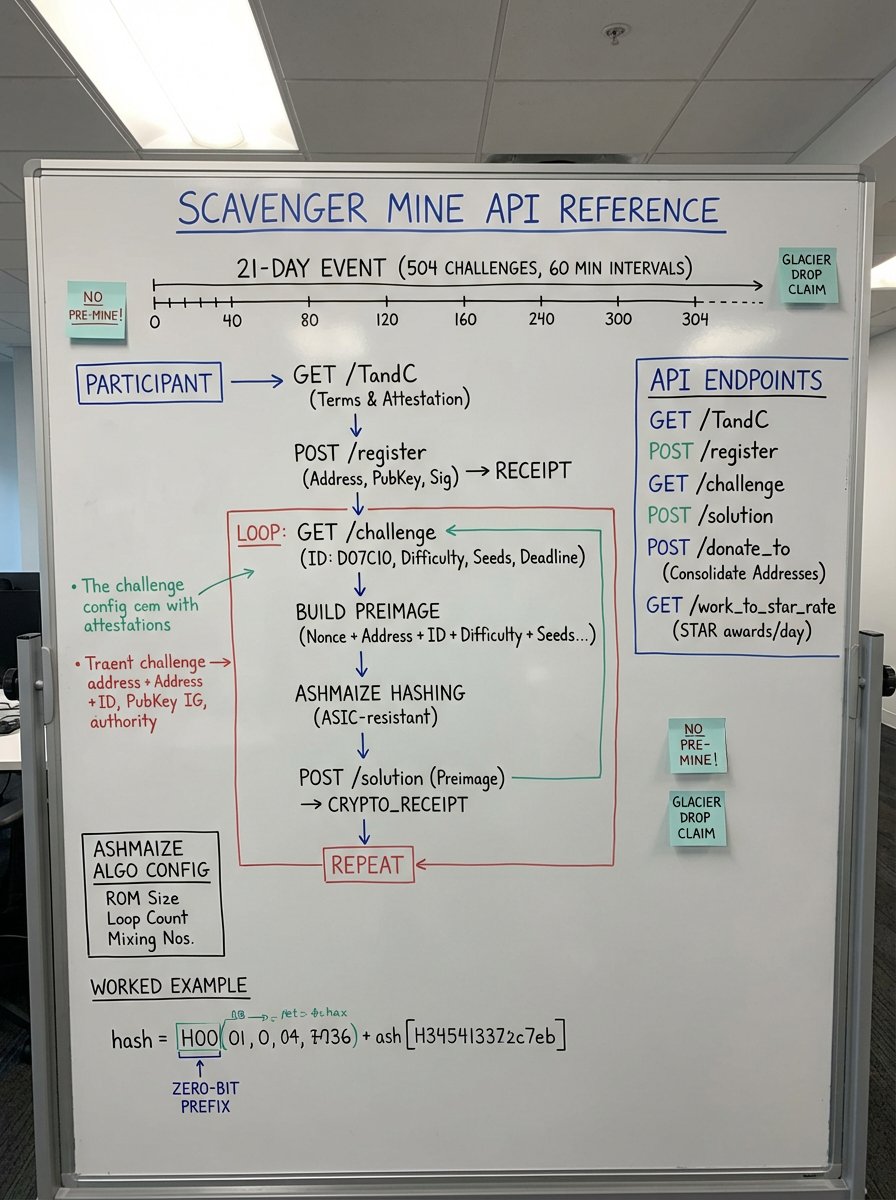 SCAVENGER MINE API REFERENCE
21-DAY EVENT (504 CHALLENGES, 60 MIN INTERVALS)
GLACIER
DROP
CLAIM
NO
PRE-MINE!
0 40 80 120 160 240 300 304
PARTICIPANT → GET /TandC
(Terms & Attestation)
POST /register
(Address, PubKey, Sig) → RECEIPT
LOOP: GET /challenge
(ID: D07C10, Difficulty, Seeds, Deadline)
BUILD PREIMAGE
(Nonce + Address + ID + Difficulty + Seeds...)
ASHMAIZE HASHING
(ASIC-resistant)
POST /solution (Preimage)
→ CRYPTO_RECEIPT
REPEAT
• The challenge
config cem with
attestations
• Traent challenge
address + Address
+ ID, PubKey IG,
authority
API ENDPOINTS
GET /TandC
POST /register
GET /challenge
POST /solution
POST /donate_to
(Consolidate Addresses)
GET /work_to_star_rate
(STAR awards/day)
NO
PRE-
MINE!
GLACIER
DROP
CLAIM
ASHMAIZE
ALGO CONFIG
ROM Size
Loop Count
Mixing Nos.
WORKED EXAMPLE
hash = H00(01, 0, 04, 7736) + ash[H345413372c7eb]
ZERO-BIT
PREFIX